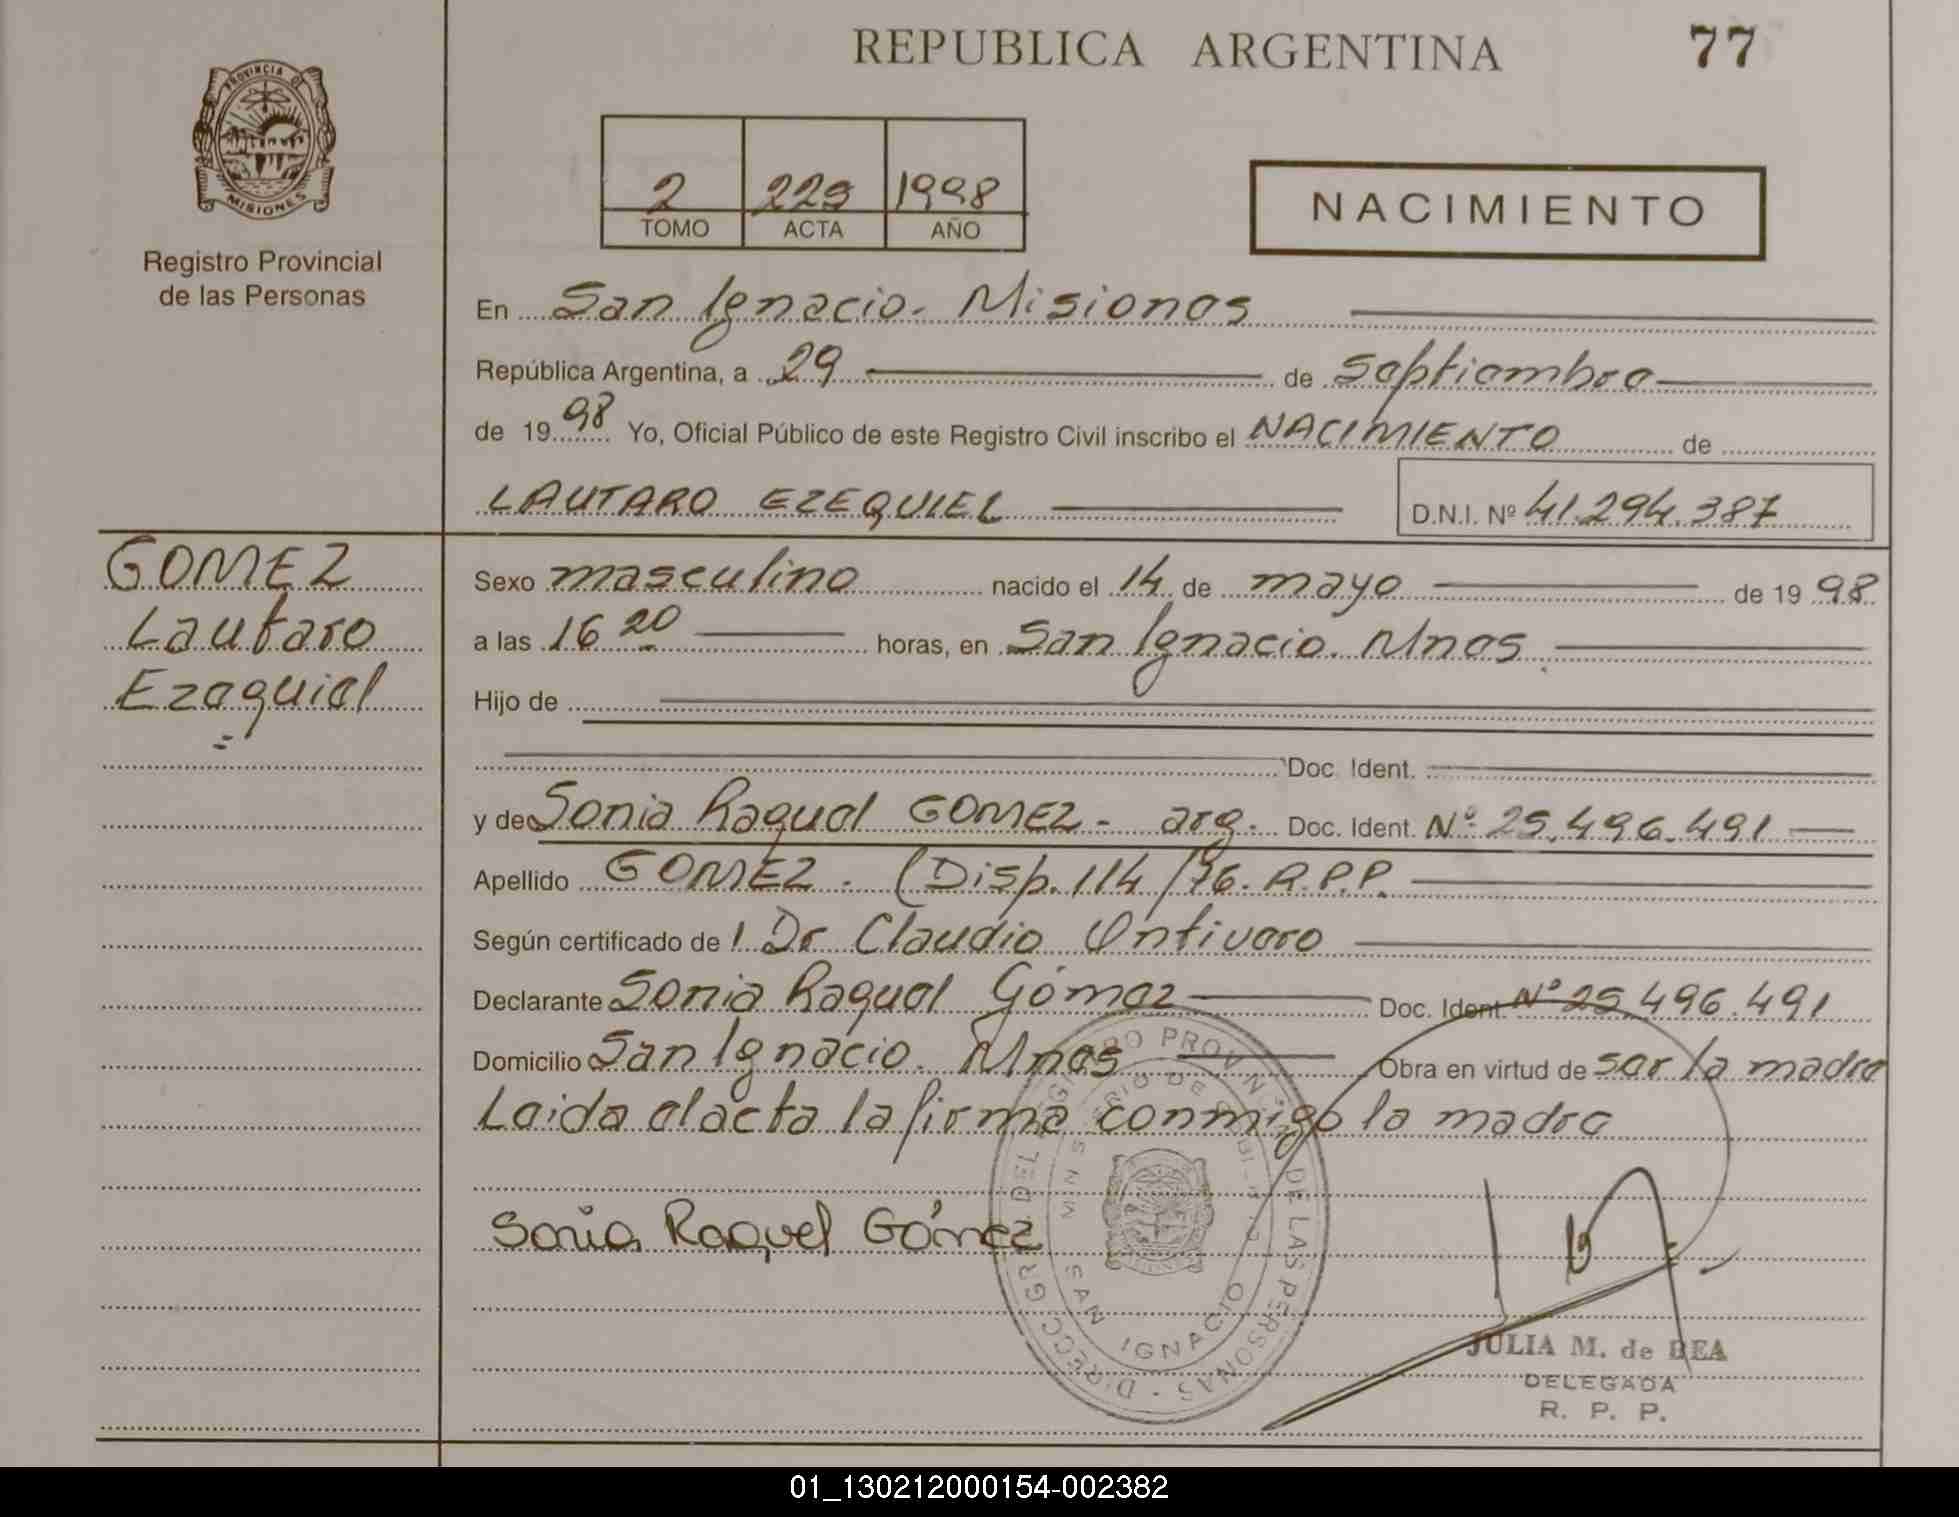 REPUBLICA ARGENTINA
77
PROVINCIA DE
MISIONES
Registro Provincial
de las Personas
2 229 1998
TOMO ACTA AÑO
NACIMIENTO
En San Ignacio. Misiones
República Argentina, a 29 de Septiembre
de 1998 Yo, Oficial Público de este Registro Civil inscribo el NACIMIENTO de
LAUTARO EZEQUIEL D.N.I. Nº 41.294.387
GOMEZ
Lautaro
Ezequiel
Sexo masculino nacido el 14 de mayo de 1998
a las 16 20 horas, en San Ignacio. Mnes.
Hijo de
Doc. Ident.
y de Sonia Raquel GOMEZ - arg. Doc. Ident. Nº 25.496.491
Apellido GOMEZ. (Disp. 114/76. R.P.P.
Según certificado de Dr Claudio Ontivero
Declarante Sonia Raquel Gómez Doc. Ident Nº 25.496.491
Domicilio San Ignacio. Mnes Obra en virtud de ser la madre
Leida el acta la firma conmigo la madre
Sonia Raquel Gómez
SAN IGNACIO
JULIA M. de BEA
DELEGADA
R. P. P.
01_130212000154-002382